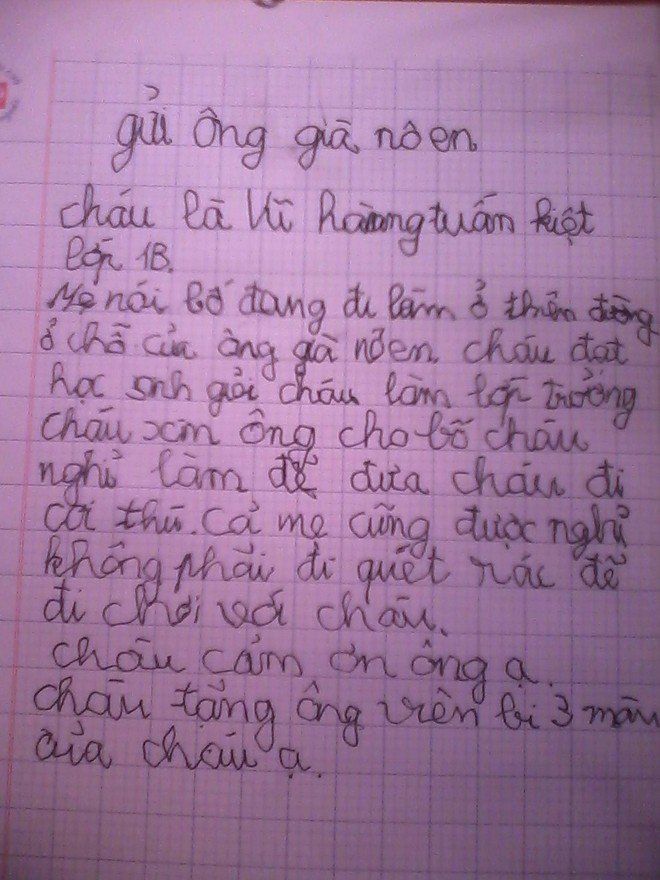 gửi ông già nôen
cháu là Vĩ hoàng tuấn kiệt
lớp 1B.
Mẹ nói bố đang đi làm ở thiên đường
ở chỗ của ông già nôen cháu đạt
học snh giỏi cháu làm lớp trưởng
cháu xin ông cho bố cháu
nghỉ làm để đưa cháu đi
coi thú. cả mẹ cũng được nghỉ
không phải đi quét rác để
đi chơi với cháu.
cháu cảm ơn ông ạ.
cháu tặng ông viên bi 3 màu
của cháu ạ.